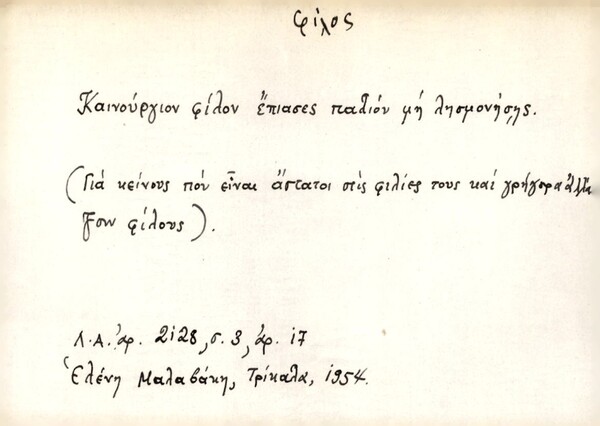 φίλος
Καινούργιον φίλον ἔπιασες παλιόν μή λησμονήσῃς.
(Γιά κείνους πού εἶναι ἄστατοι στίς φιλίες τους καί γρήγορα ἀλλά
ζουν φίλους).
Λ.Α. ἀρ. 2128, σ. 3, ἀρ. 17
Ἑλένη Μαλαβάκη, Τρίκαλα, 1954.